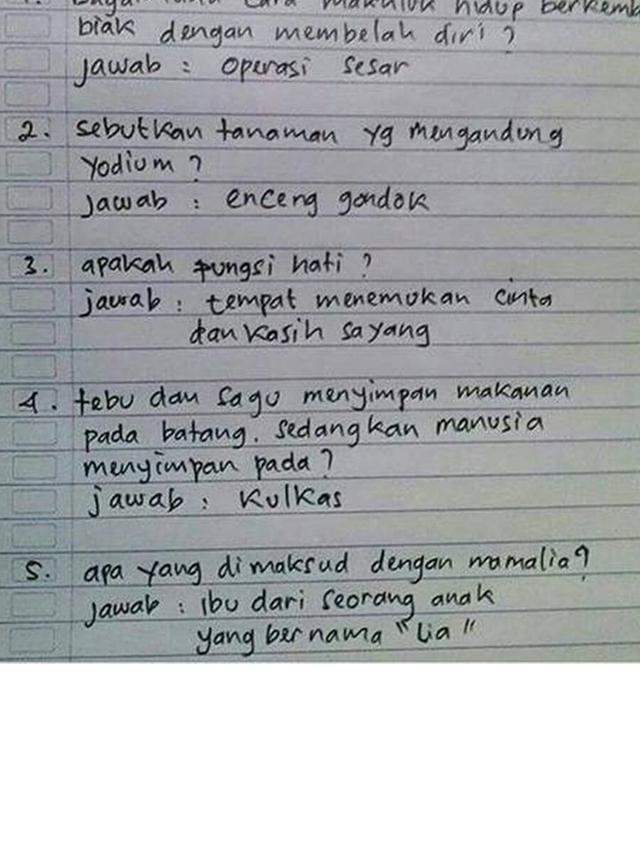 1. Bagaimana cara makhluk hidup berkemb
biak dengan membelah diri ?
jawab : operasi sesar
2. sebutkan tanaman yg mengandung
yodium ?
jawab : enceng gondok
3. apakah fungsi hati ?
jawab : tempat menemukan cinta
dan kasih sayang
4. tebu dan sagu menyimpan makanan
pada batang. sedangkan manusia
menyimpan pada ?
jawab : kulkas
5. apa yang dimaksud dengan mamalia?
jawab : ibu dari seorang anak
yang bernama "Lia"